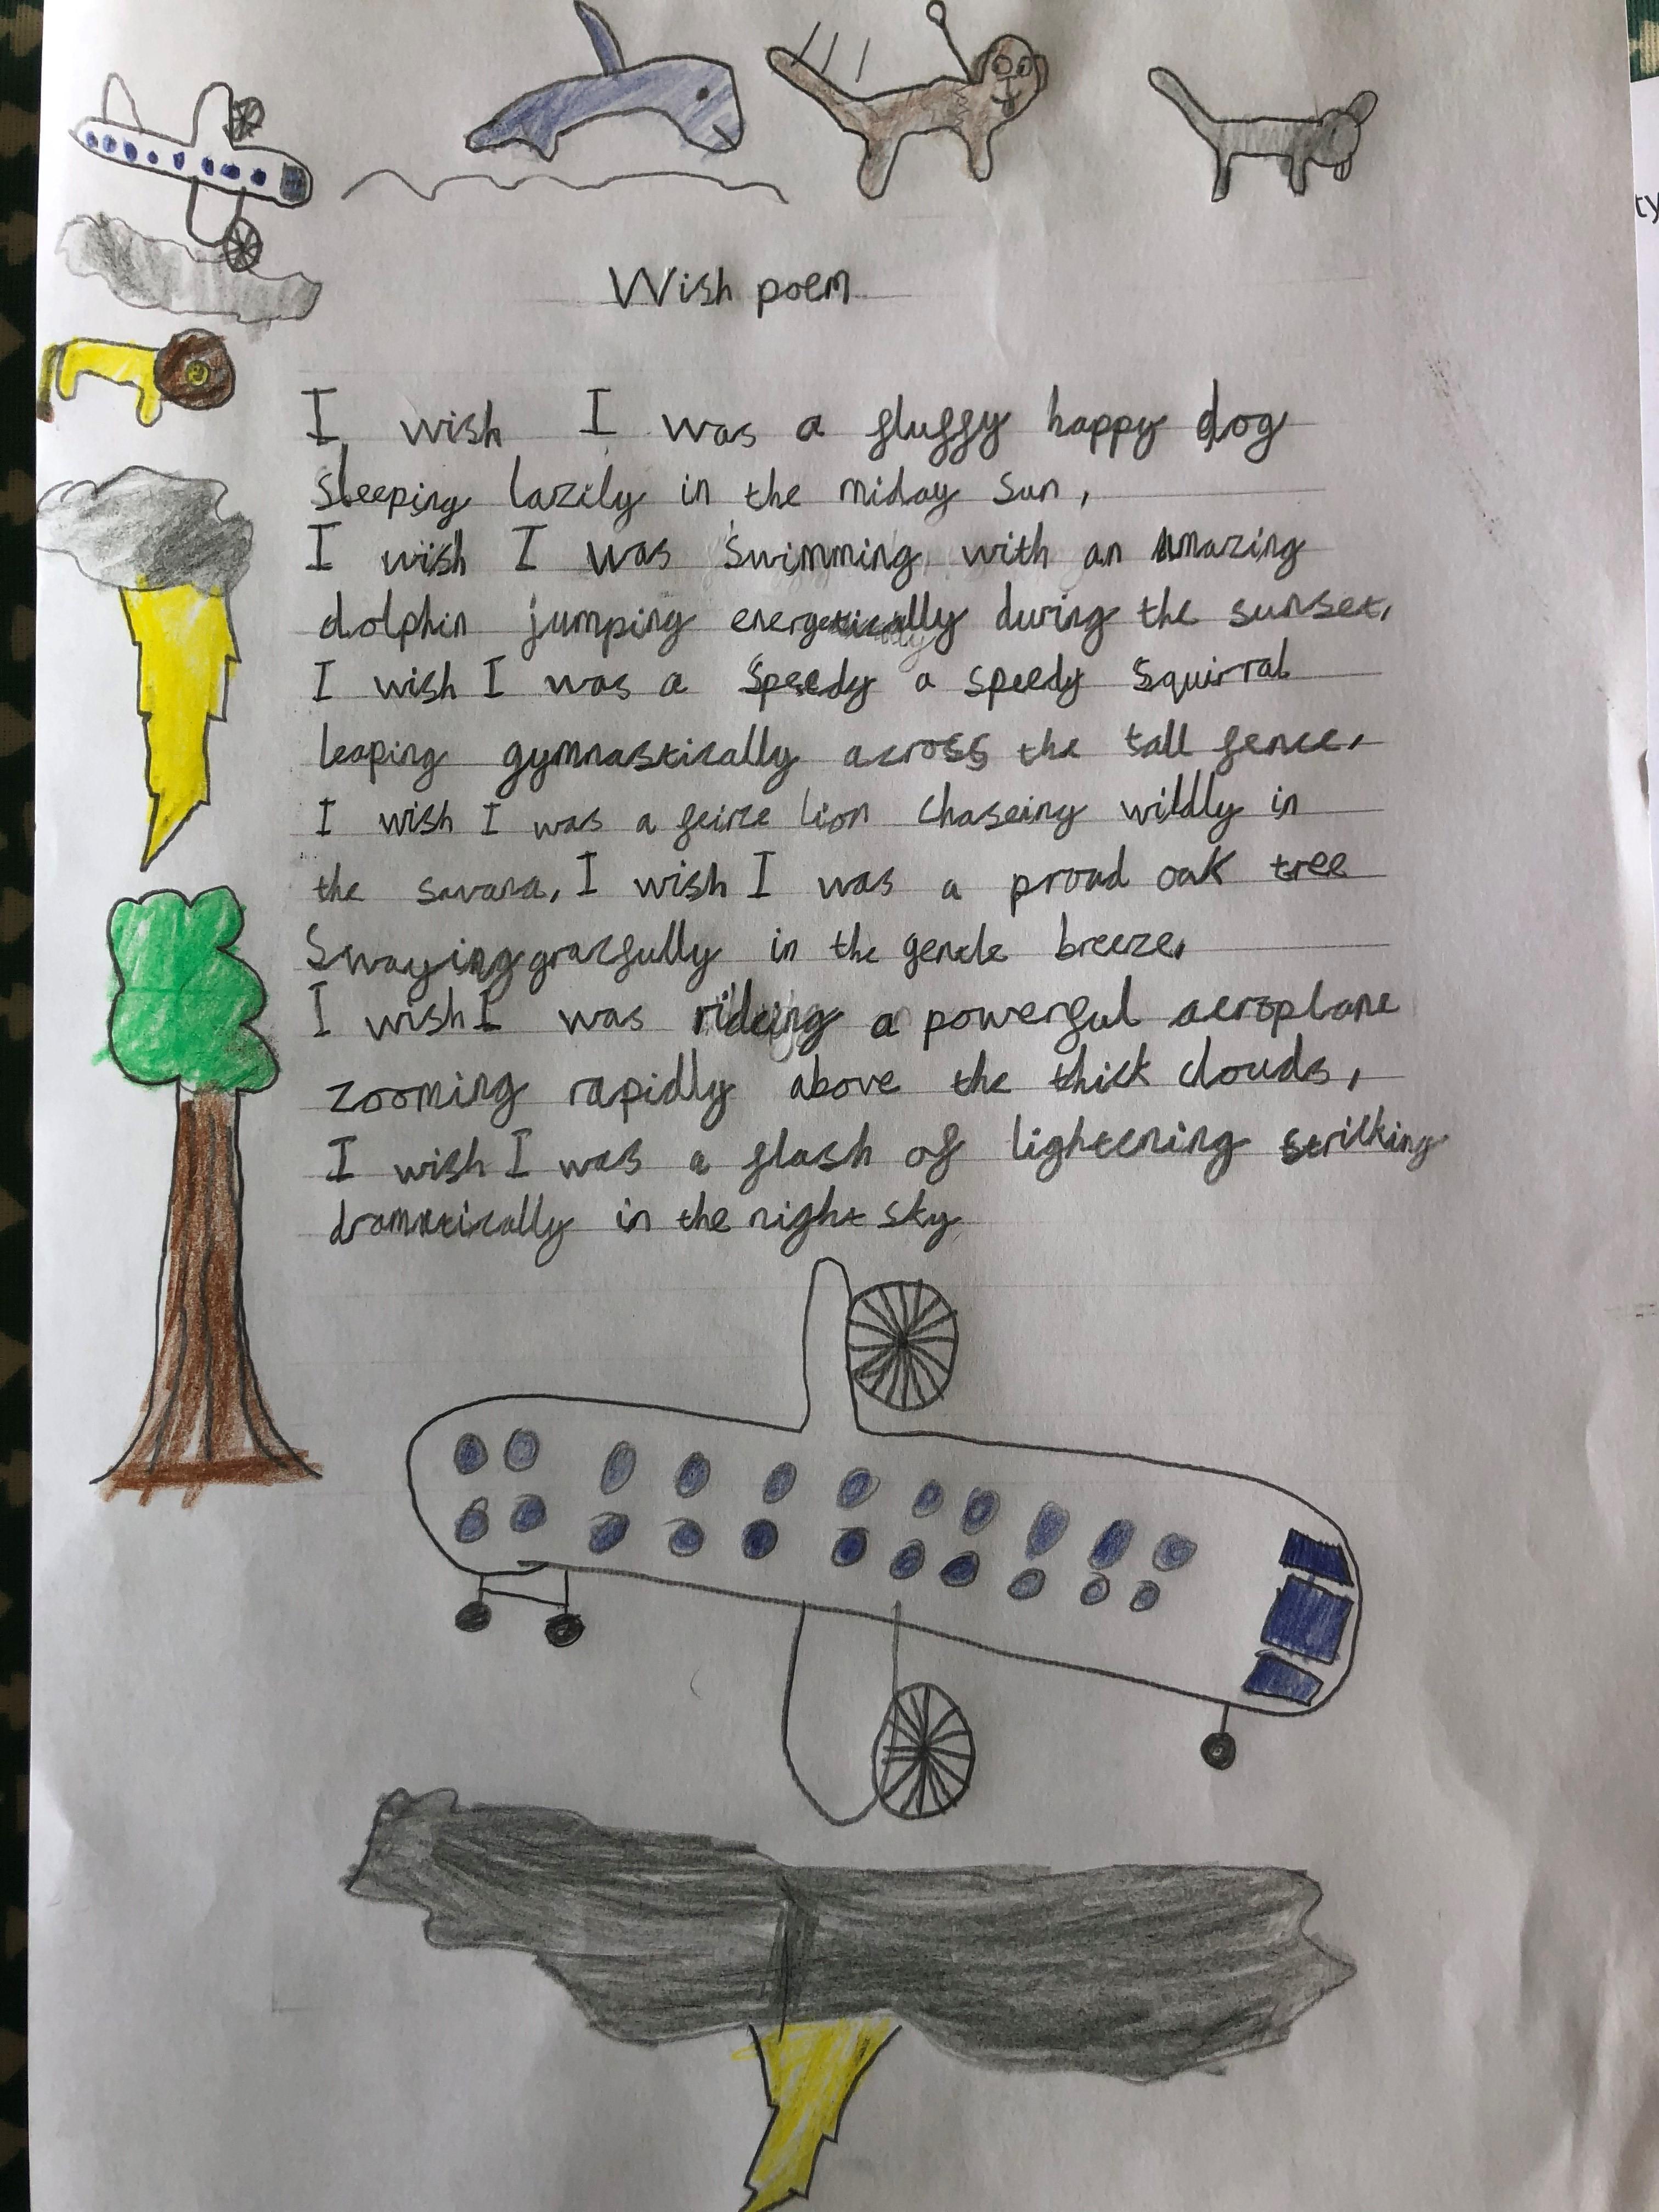 Wish poem
I wish I was a fluffy happy dog
sleeping lazily in the miday sun,
I wish I was swimming with an amazing
dolphin jumping energetically during the sunset,
I wish I was a speedy a speedy squirral
leaping gymnastically across the tall fence,
I wish I was a feirce lion chaseing wildly in
the savana, I wish I was a proud oak tree
Swaying gracfully in the gentle breeze,
I wish I was rideing a powerful aeroplane
zooming rapidly above the thick clouds,
I wish I was a flash of lightening striking
dramatically in the night sky
ty